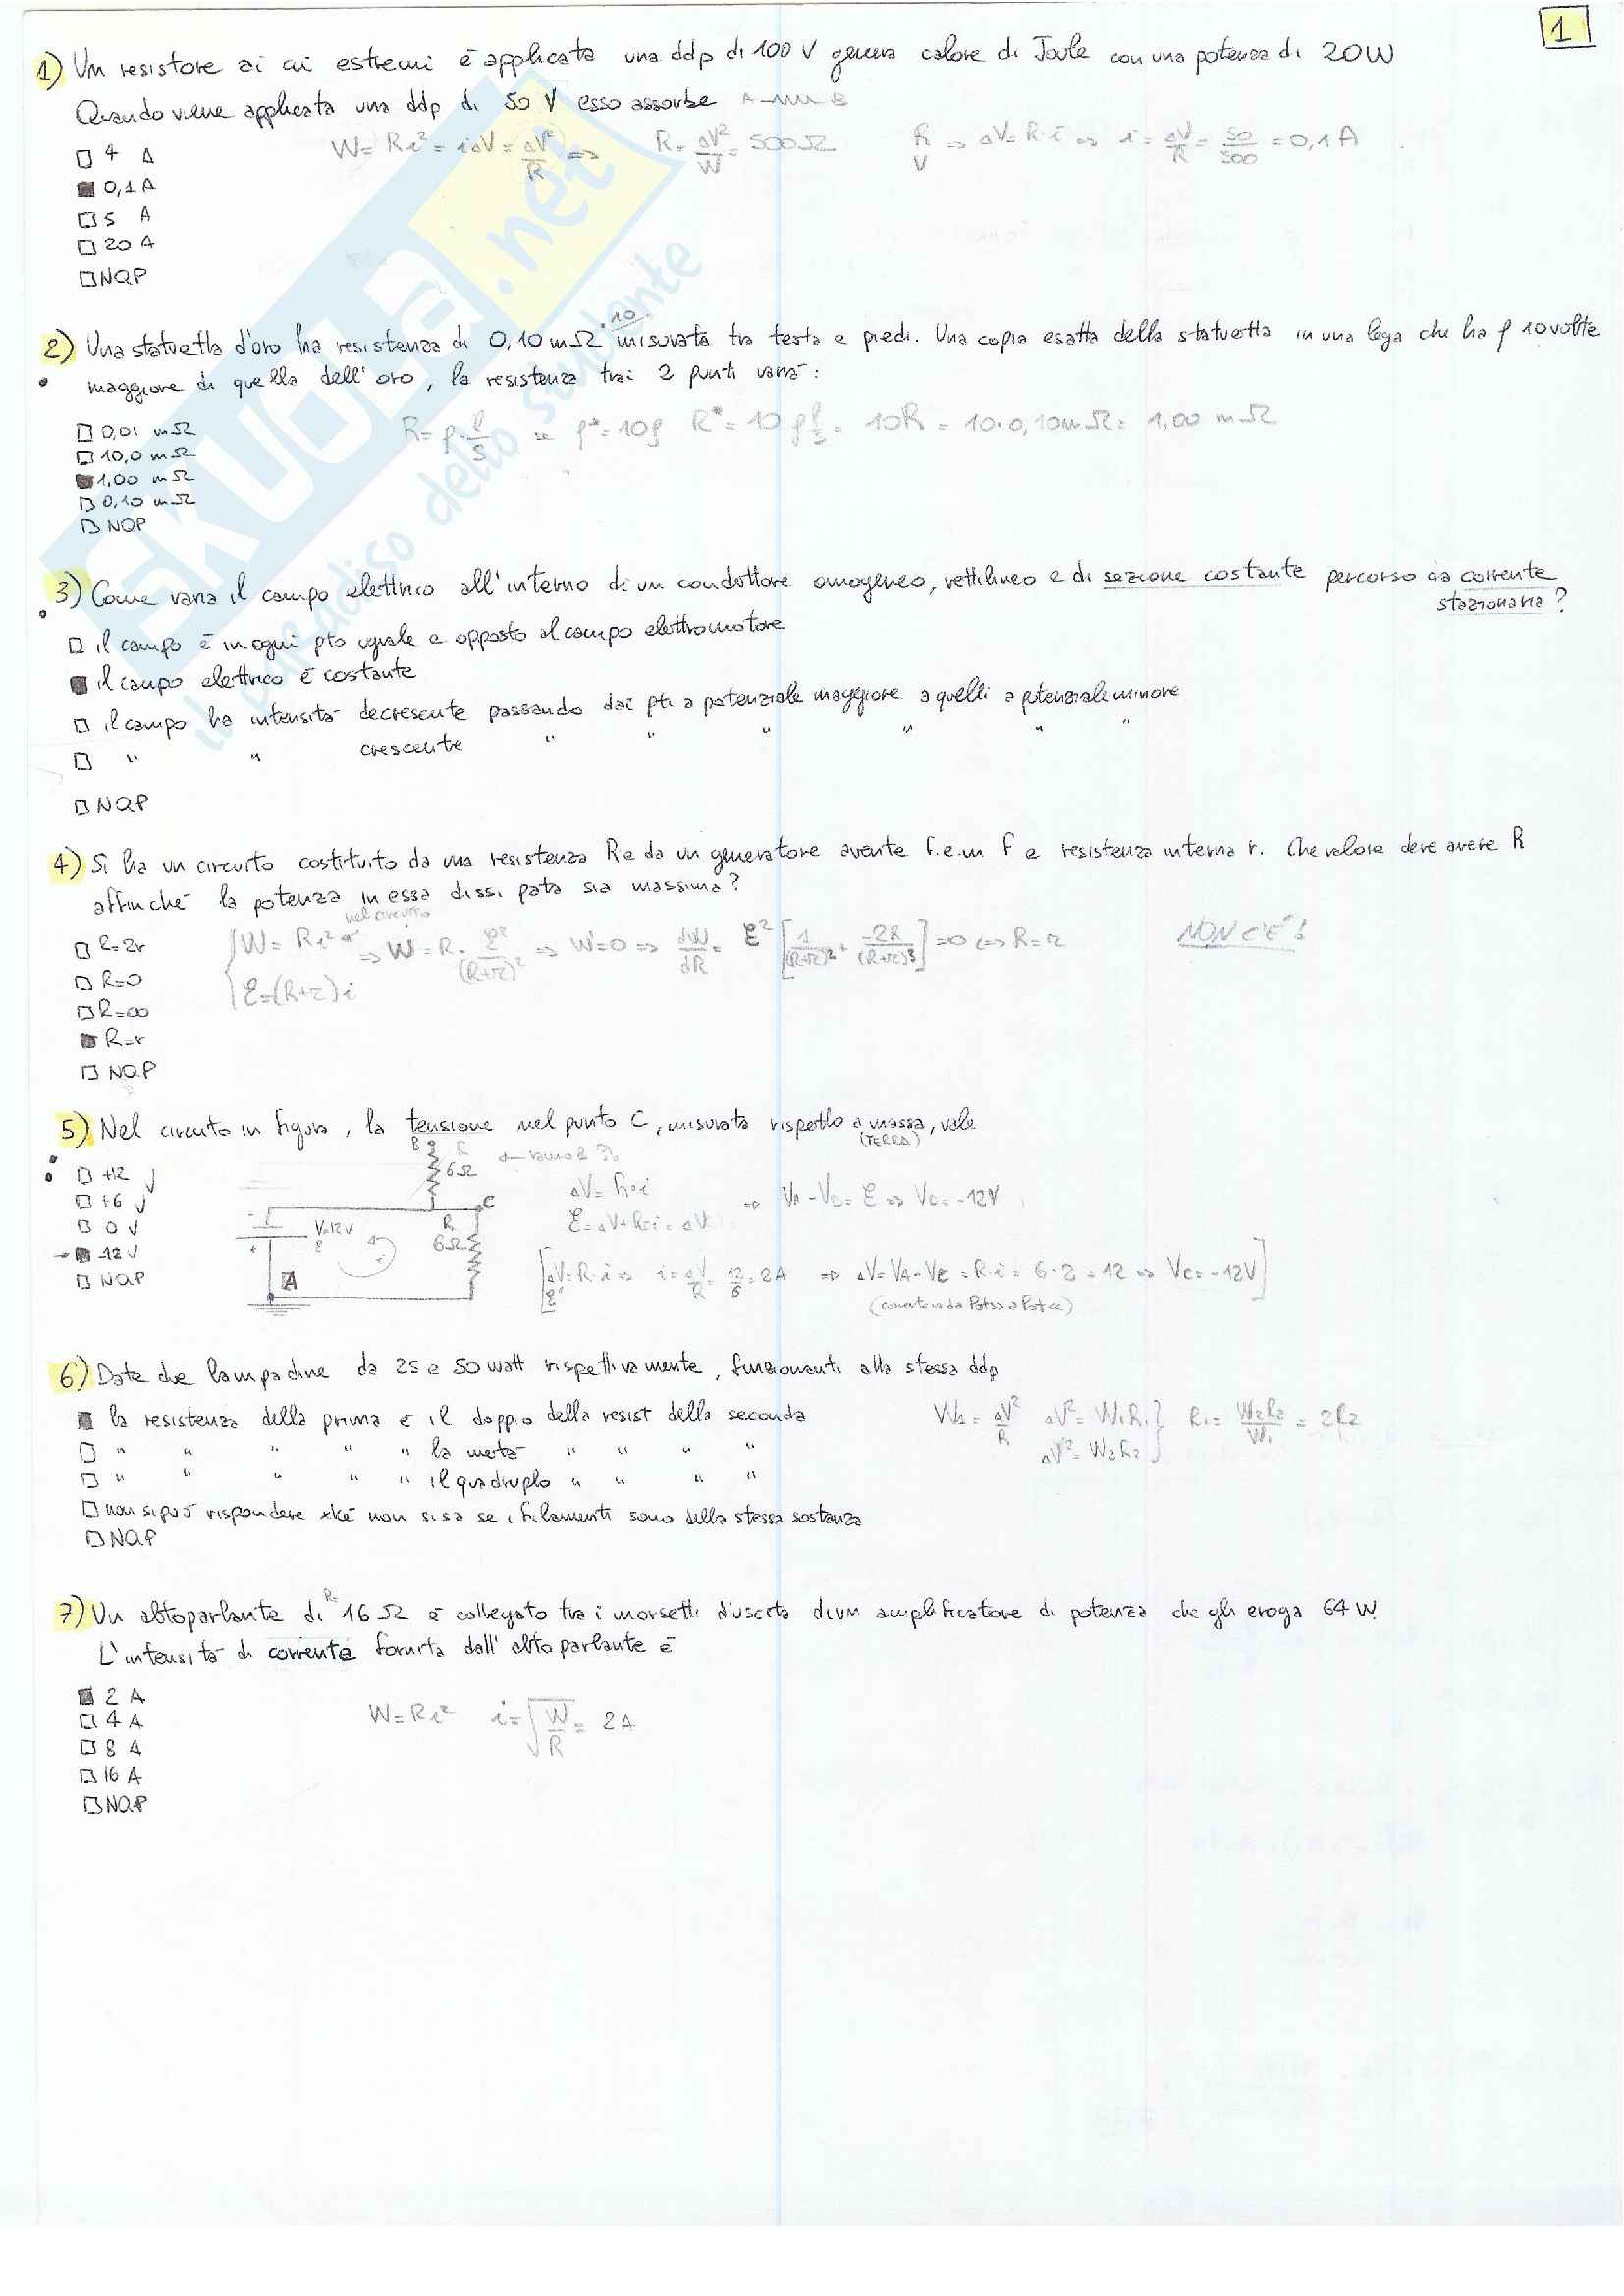 1
1) Un resistore ai cui estremi è applicata una ddp di 100 V genera calore di Joule con una potenza di 20W
Quando viene applicata una ddp di 50 V esso assorbe A B
W = Ri² = iΔV = ΔV²/R => R = ΔV²/W = 500Ω R V => ΔV = R·i => i = ΔV/R = 50/500 = 0,1 A
4 A
0,1 A
5 A
20 A
NQP
2) Una statuetta d'oro ha resistenza di 0,10 mΩ misurata tra testa e piedi. Una copia esatta della statuetta in una lega che ha ρ 10 volte
maggiore di quella dell'oro, la resistenza trai 2 punti varrà:
R = ρ·l/S se ρ* = 10ρ R* = 10 ρ l/S = 10R = 10·0,10mΩ = 1,00 mΩ
0,01 mΩ
10,0 mΩ
1,00 mΩ
0,10 mΩ
NQP
3) Come varia il campo elettrico all'interno di un conduttore omogeneo, rettilineo e di sezione costante percorso da corrente
stazionaria?
il campo è in ogni pto uguale e opposto al campo elettromotore
il campo elettrico è costante
il campo ha intensità decrescente passando dai pti a potenziale maggiore a quelli a potenziale minore
" " crescente " " " " " "
NQP
4) Si ha un circuito costituito da una resistenza R e da un generatore avente f.e.m f e resistenza interna r. Che valore deve avere R
affinché la potenza in essa dissipata sia massima?
nel circuito
R=2r
W = Ri² => W = R·ℰ²/(R+r)² => W=0 => dW/dR = ℰ² [1/(R+r)² + -2R/(R+r)³] = 0 <=> R=r
NON C'È!
ℰ=(R+r)i
R=0
R=∞
R=r
NQP
5) Nel circuito in figura, la tensione nel punto C, misurata rispetto a massa, vale
(TERRA)
B
6Ω
+12 V
+6 V
0 V
-12 V
NQP
C
R
V=12V
ℰ
6Ω
i
A
- +
ΔV = R·i => VA-VC = ℰ => VC = -12V
ℰ = ΔV + Ri = ΔV
[ΔV = R·i => i = ΔV/R = 12/6 = 2A => ΔV = VA-VC = R·i = 6·2 = 12 => VC = -12V]
6) Date due lampadine da 25 e 50 watt rispettivamente, funzionanti alla stessa ddp
la resistenza della prima è il doppio della resist della seconda
W1 = ΔV²/R ΔV² = W1R1 ΔV² = W2R2 } R1 = W2R2/W1 = 2R2
" " " " " la metà " " " "
" " " " " il quadruplo " " " "
non si può rispondere xké non si sa se i filamenti sono della stessa sostanza
NQP
7) Un altoparlante di 16 Ω è collegato tra i morsetti d'uscita di un amplificatore di potenza che gli eroga 64 W.
L'intensità di corrente fornita dall'altoparlante è
2 A
W = Ri² i = √W/R = 2A
4 A
8 A
16 A
NQP
SKUOLA.net
il paradiso dello studente